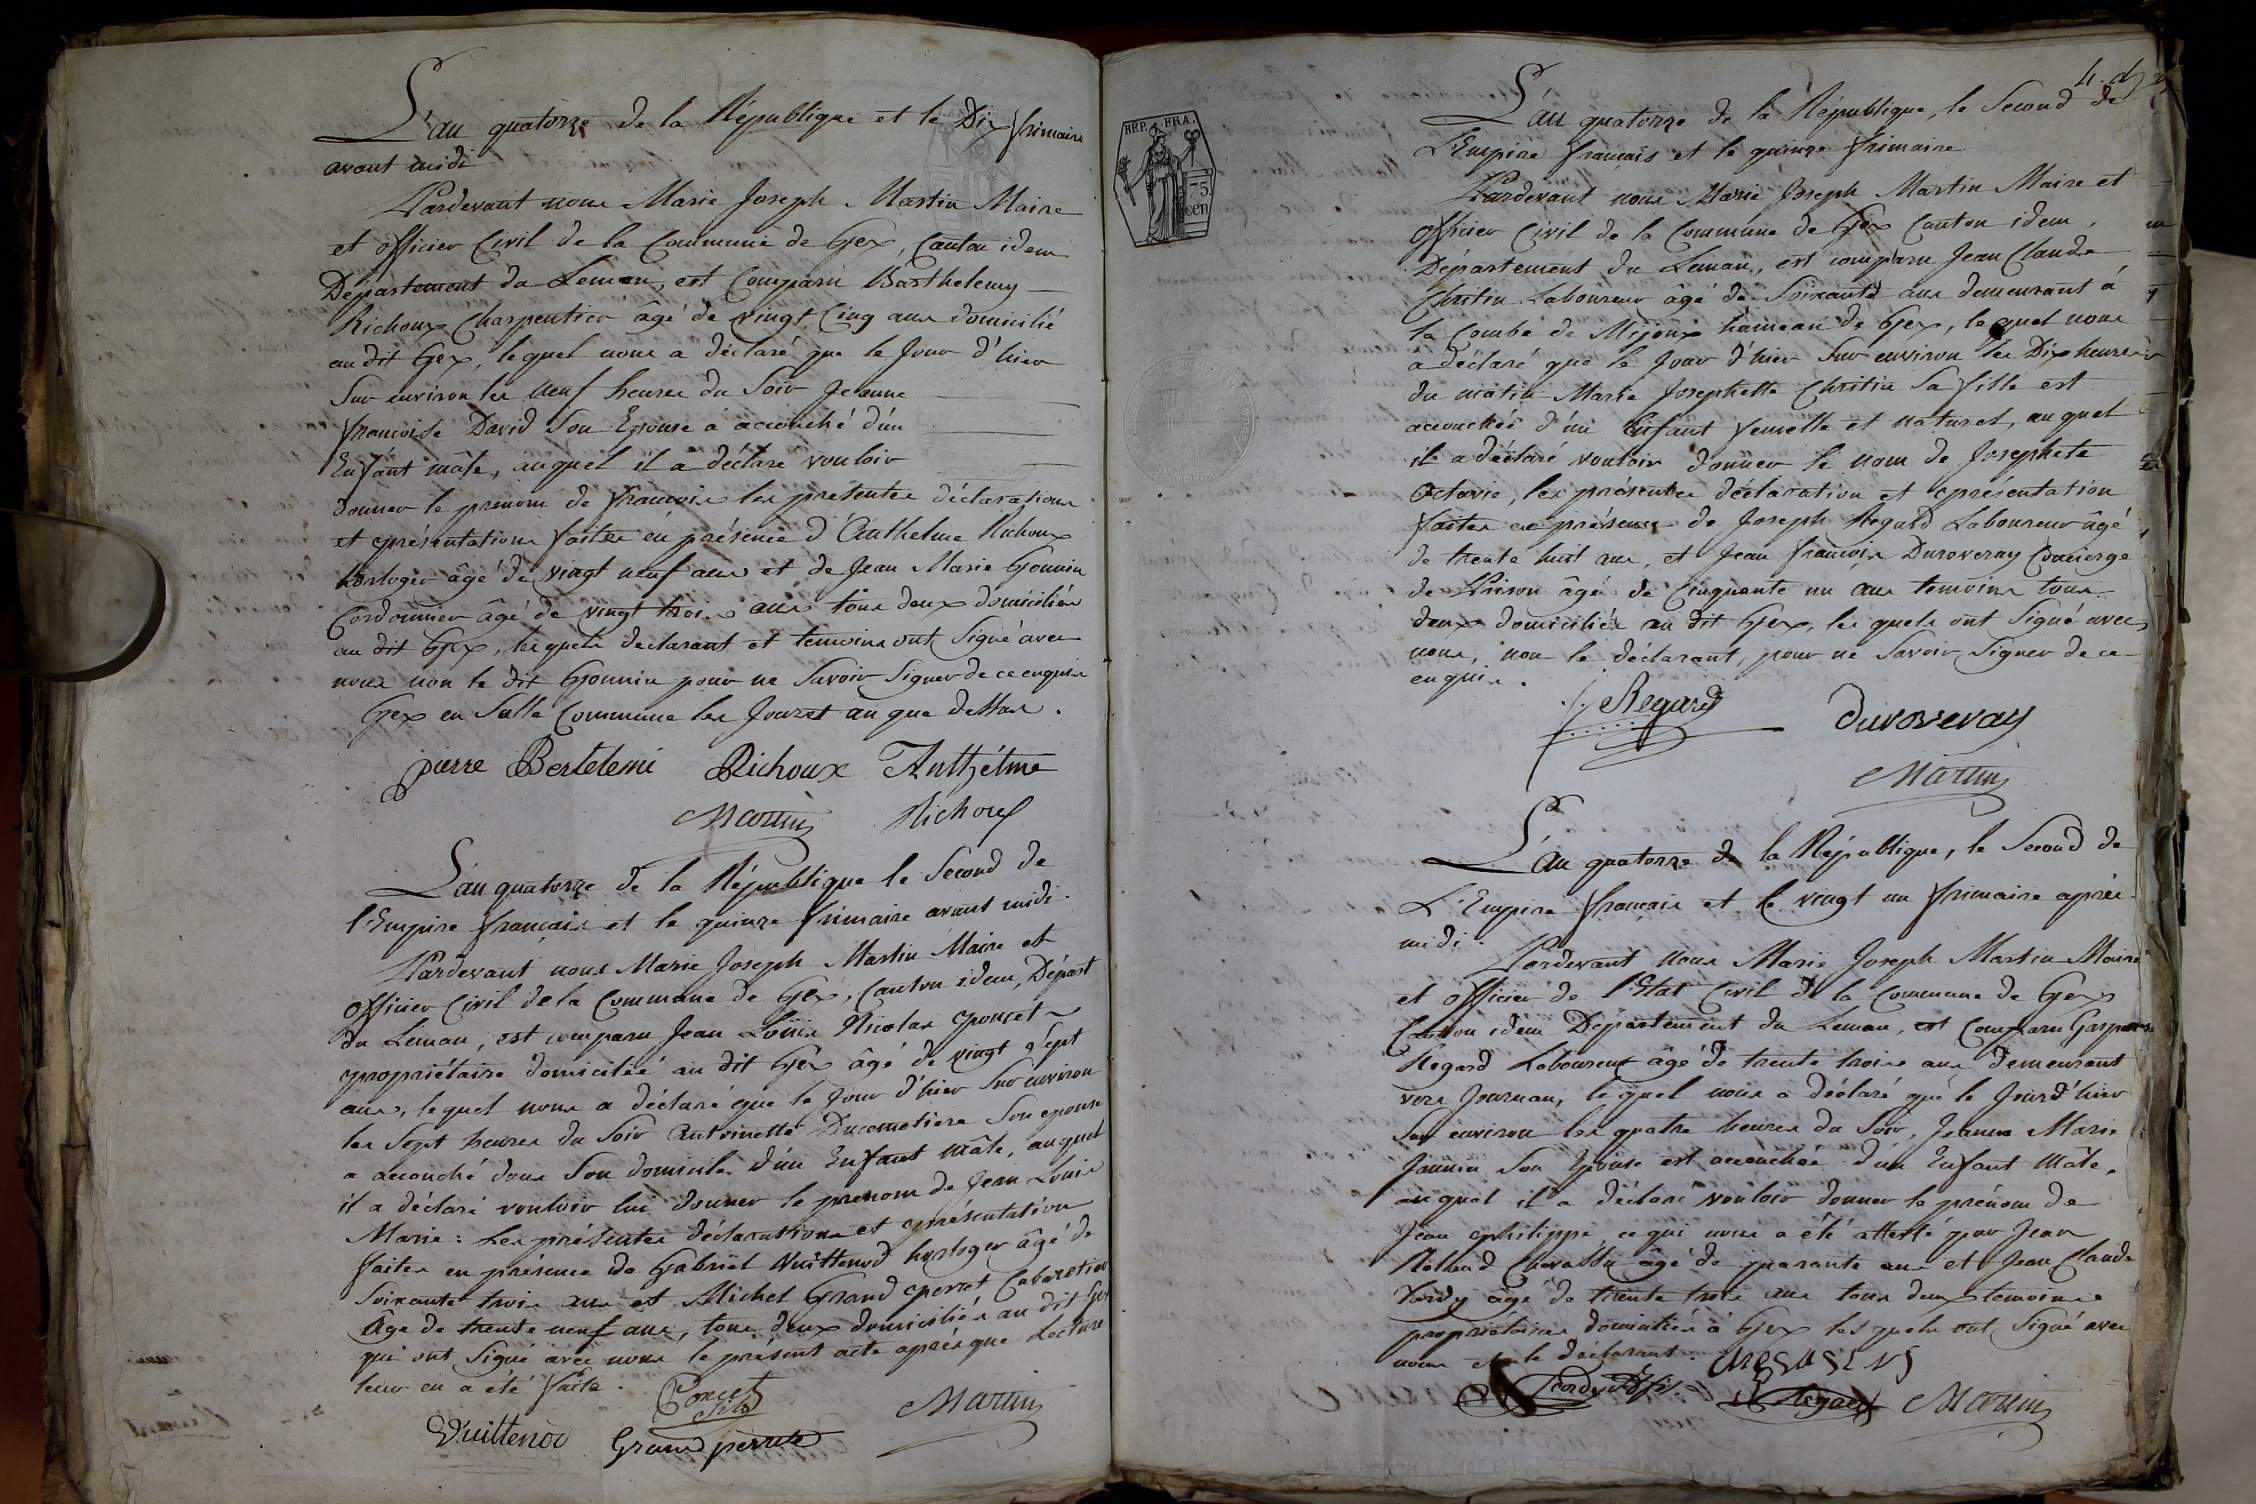 L'an quatorze de la République et le Dix frimaire
avant midi
Pardevant nous Marie Joseph Martin Maire
et officier Civil de la Commune de Gex, Canton idem
Département du Leman, est Comparu Barthelemy
Richoux Charpentier âgé de vingt Cinq ans domicilié
au dit Gex, lequel nous a déclaré que le Jour d'hier
Sur environ les neuf heures du Soir Jeanne
françoise David Son Epouse a accouché d'un
Enfant mâle, auquel il a déclaré vouloir
donner le prenom de françois les presentes déclarations
et présentations faites en présence d'Anthelme Richoux
horloger âgé de vingt neuf ans et de Jean Marie Gonnin
Cordonnier âgé de vingt trois ans tous deux domiciliés
au dit Gex, lesquels declarant et temoins ont Signé avec
nous non le dit Gonnin pour ne Savoir Signer de ce enquis
Gex en Salle Commune les Jour et an que dessus.
pierre Bertelemi Richoux Anthelme
Martin Richoux
L'an quatorze de la République le Second de
l'Empire français et le quinze frimaire avant midi.
Pardevant nous Marie Joseph Martin Maire et
officier Civil de la Commune de Gex, Canton idem, Départ
du Leman, est comparu Jean Louis Nicolas Poncet
propriétaire domicilié au dit Gex âgé de vingt Sept
ans, lequel nous a déclaré que le Jour d'hier Sur environ
les Sept heures du Soir Antoinette Ducimetiere Son epouse
a accouché dans Son domicile d'un Enfant mâle, auquel
il a déclaré vouloir lui donner le prenom de Jean Louis
Marie: Les présentes déclarations et présentation
faites en présence de Gabriel Vuittenod horloger âgé de
Soixante trois ans et Michel Grand perret Cabaretier
âgé de trente neuf ans, tous deux domiciliés au dit Gex
qui ont Signé avec nous le présent acte après que Lecture
leur en a été faite.
Poncet fils Martin
Vuittenod Grand perret
REP. FRA.
75
cen
L'an quatorze de la République, le Second de
L'Empire français et le quinze frimaire
Pardevant nous Marie Joseph Martin Maire et
officier Civil de la Commune de Gex Canton idem,
Département du Leman, est comparu Jean Claude
Christin Laboureur âgé de Soixante ans demeurant à
la Combe de Mijoux hameau de Gex, lequel nous
a déclaré que le Jour d'hier Sur environ les Dix heures
du matin Marie Josephette Christin Sa fille est
accouchée d'un Enfant femelle et naturel, auquel
il a déclaré vouloir donner le nom de Josephete
Octavie, les présentes déclaration et présentation
faites en présence de Joseph Regard Laboureur âgé
de trente huit ans, et Jean françois Duroveray Concierge
de Prison âgé de Cinquante un ans temoins tous
deux domiciliés au dit Gex, lesquels ont Signé avec
nous, non le déclarant, pour ne Savoir Signer de ce
enquis.
Regard Duroveray
Martin
L'an quatorze de la République, le Second de
L'Empire français et le vingt un frimaire après
midi.
Pardevant nous Marie Joseph Martin Maire
et officier de l'Etat Civil de la Commune de Gex
Canton idem Département du Leman, est Comparu Gaspard
Regard Laboureur âgé de trente trois ans demeurant
vers Journan, lequel nous a déclaré que le Jour d'hier
Sur environ les quatre heures du Soir, Jeanne Marie
Jannin Son Epouse est accouchée d'un Enfant Mâle,
auquel il a déclaré vouloir donner le prénom de
Jean philippe, ce qui nous a été attesté par Jean
Rolland Chevassu âgé de quarante ans et Jean Claude
Tardy âgé de trente trois ans tous deux temoins
propriétaires domiciliés à Gex lesquels ont Signé avec
nous et le declarant.
Tardy fils. Regard Martin